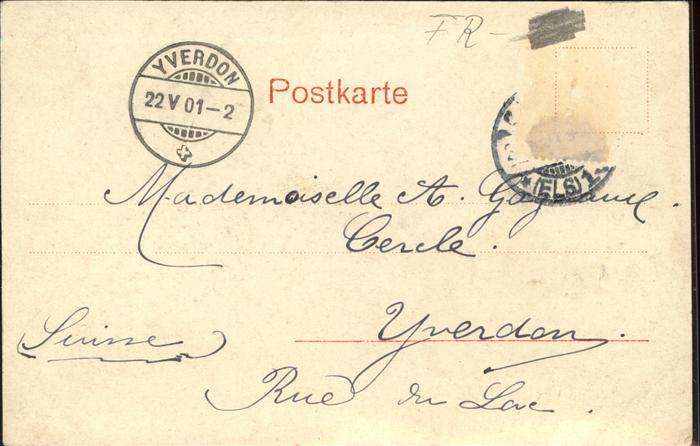 FR-
YVERDON
22 V 01-2
Postkarte
(ELS) 1
Mademoiselle A.
Cercle.
Yverdon.
Suisse
Rue du Lac